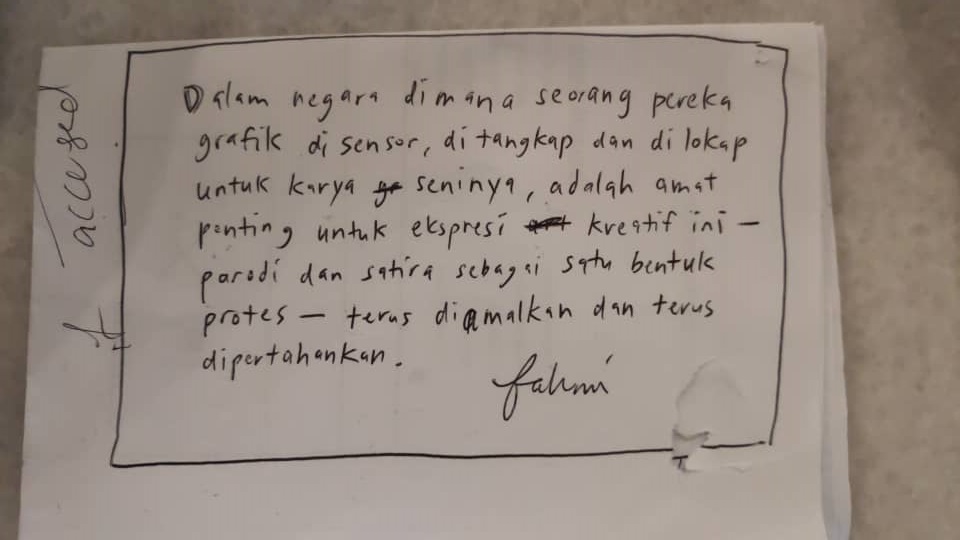 Dalam negara dimana seorang pereka
grafik di sensor, di tangkap dan di lokap
untuk karya seninya, adalah amat
penting untuk ekspresi kreatif ini —
parodi dan satira sebagai satu bentuk
protes — terus diamalkan dan terus
dipertahankan.
fahmi
accused